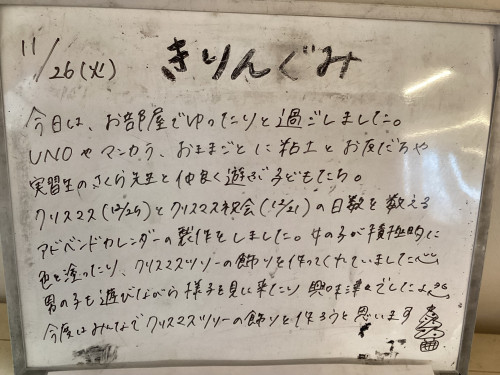 11/26(火) きりんぐみ
今日は、お部屋でゆったりと過ごしました。
UNOやマンカラ、おままごとに粘土とお友だちや
実習生のさくら先生と仲良く遊ぶ子どもたち。
クリスマス(12/25)とクリスマス祝会(12/21)の日数を数える
アドベンドカレンダーの製作をしました。女の子が積極的に
色を塗ったり、クリスマスツリーの飾りを作ってくれていました
男の子も遊びながら様子を見に来たり興味津々でしたよ
今度はみんなでクリスマスツリーの飾りを作ろうと思います